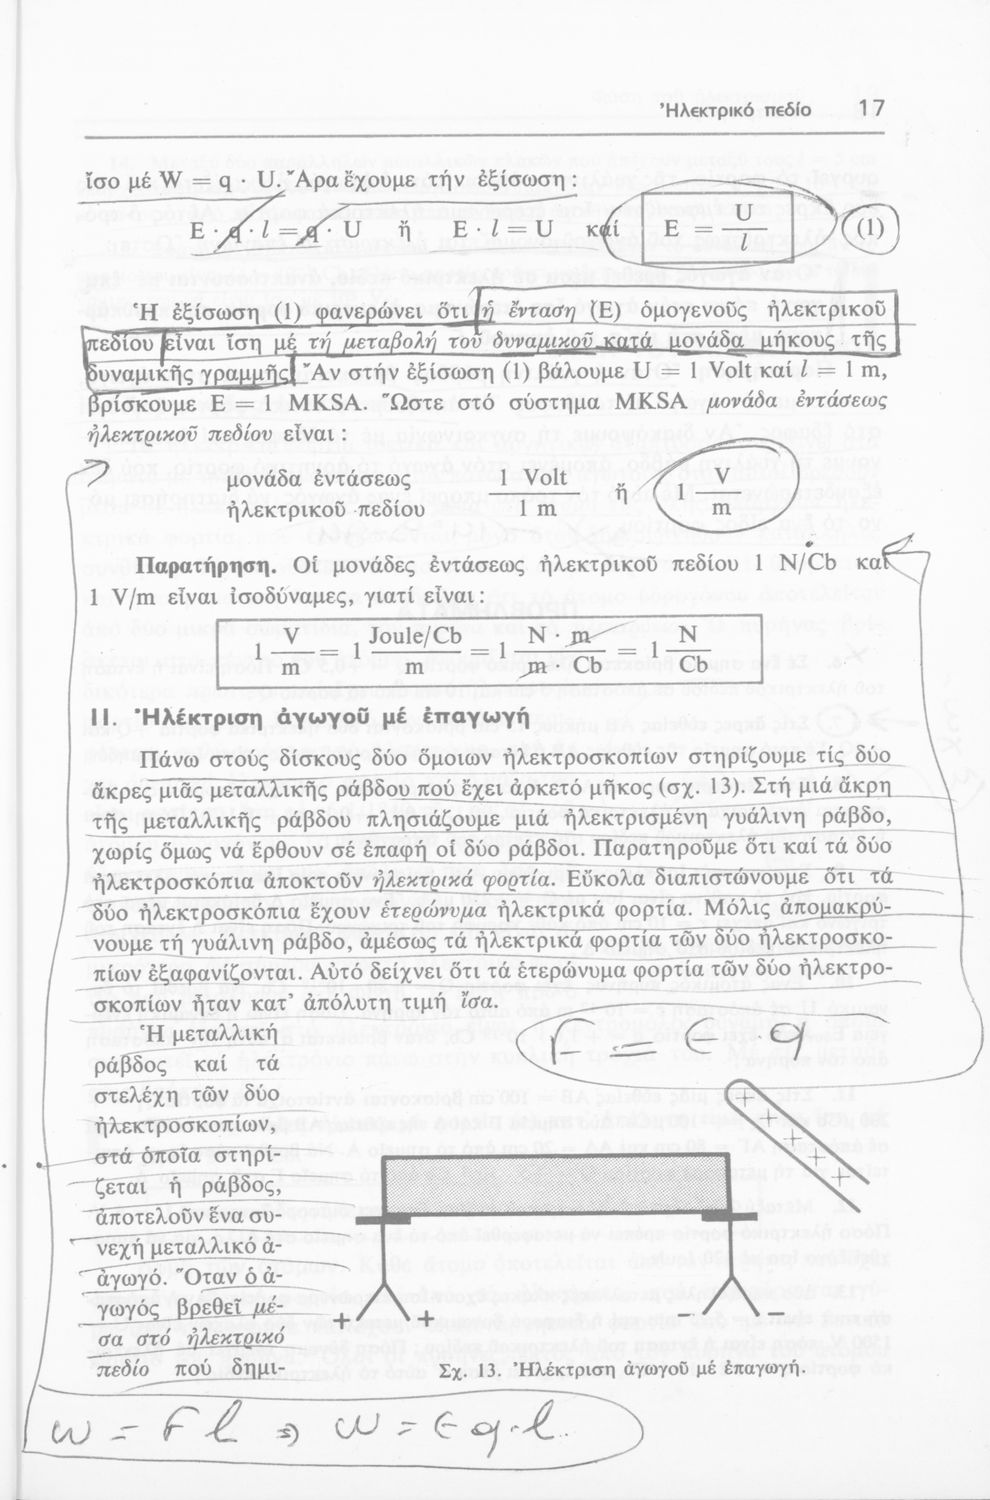 Ἠλεκτρικό πεδίο 17
ἴσο μέ W = q · U. Ἄρα ἔχουμε τήν ἐξίσωση :
E · q · l = q · U ἤ E · l = U καί E = U / l (1)
Ἡ ἐξίσωση (1) φανερώνει ὅτι ἡ ἔνταση (E) ὁμογενοῦς ἠλεκτρικοῦ
πεδίου εἶναι ἴση μέ τή μεταβολή τοῦ δυναμικοῦ κατά μονάδα μήκους τῆς
δυναμικῆς γραμμῆς. Ἄν στήν ἐξίσωση (1) βάλουμε U = 1 Volt καί l = 1 m,
βρίσκουμε E = 1 MKSA. Ὥστε στό σύστημα MKSA μονάδα ἐντάσεως
ἠλεκτρικοῦ πεδίου εἶναι :
μονάδα ἐντάσεως 1 Volt ἤ 1 V
ἠλεκτρικοῦ πεδίου 1 m m
Παρατήρηση. Οἱ μονάδες ἐντάσεως ἠλεκτρικοῦ πεδίου 1 N/Cb καί
1 V/m εἶναι ἰσοδύναμες, γιατί εἶναι :
1 V / m = 1 Joule/Cb / m = 1 N · m / m · Cb = 1 N / Cb
11. Ἠλέκτριση ἀγωγοῦ μέ ἐπαγωγή
Πάνω στούς δίσκους δύο ὅμοιων ἠλεκτροσκοπίων στηρίζουμε τίς δύο
ἄκρες μιᾶς μεταλλικῆς ράβδου πού ἔχει ἀρκετό μῆκος (σχ. 13). Στή μιά ἄκρη
τῆς μεταλλικῆς ράβδου πλησιάζουμε μιά ἠλεκτρισμένη γυάλινη ράβδο,
χωρίς ὅμως νά ἔρθουν σέ ἐπαφή οἱ δύο ράβδοι. Παρατηροῦμε ὅτι καί τά δύο
ἠλεκτροσκόπια ἀποκτοῦν ἠλεκτρικά φορτία. Εὔκολα διαπιστώνουμε ὅτι τά
δύο ἠλεκτροσκόπια ἔχουν ἑτερώνυμα ἠλεκτρικά φορτία. Μόλις ἀπομακρύ-
νουμε τή γυάλινη ράβδο, ἀμέσως τά ἠλεκτρικά φορτία τῶν δύο ἠλεκτροσκο-
πίων ἐξαφανίζονται. Αὐτό δείχνει ὅτι τά ἑτερώνυμα φορτία τῶν δύο ἠλεκτρο-
σκοπίων ἦταν κατ' ἀπόλυτη τιμή ἴσα.
Ἡ μεταλλική
ράβδος καί τά
στελέχη τῶν δύο
ἠλεκτροσκοπίων,
στά ὁποῖα στηρί-
ζεται ἡ ράβδος,
ἀποτελοῦν ἕνα συ-
νεχή μεταλλικό ἀ-
ἀγωγό. Ὅταν ὁ ἀ-
γωγός βρεθεῖ μέ-
σα στό ἠλεκτρικό
πεδίο πού δημι-
+ + +
+ + − −
Σχ. 13. Ἠλέκτριση ἀγωγοῦ μέ ἐπαγωγή.
W = F l ⇒ W = E q · l